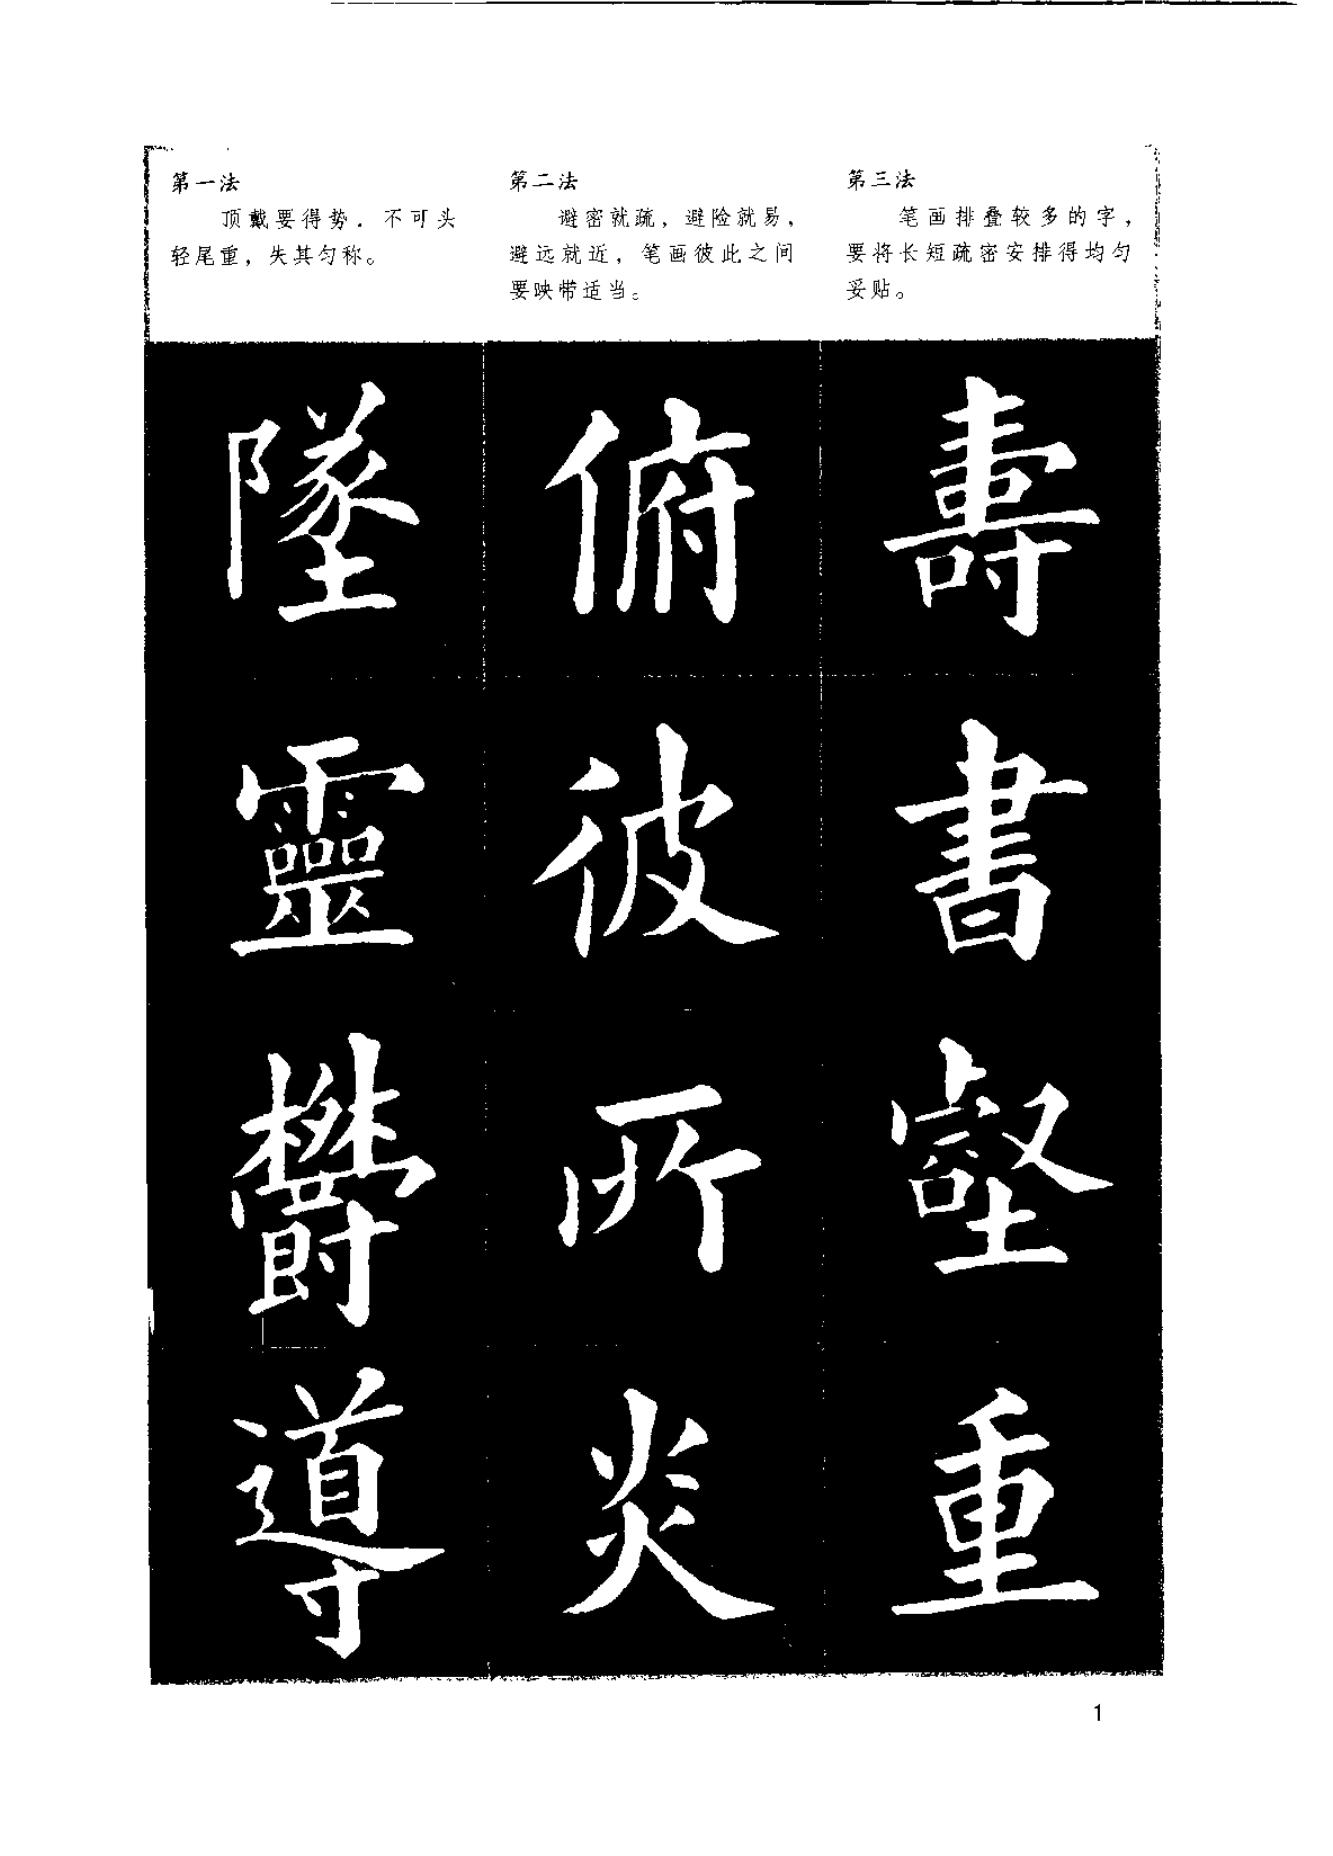 第一法
顶戴要得势．不可头
轻尾重，失其匀称。
第二法
避密就疏，避险就易，
避远就近，笔画彼此之间
要映带适当。
第三法
笔画排叠较多的字，
要将长短疏密安排得均匀
妥贴。
墜
靈
欝
導
俯
彼
所
炎
壽
書
壑
重
1